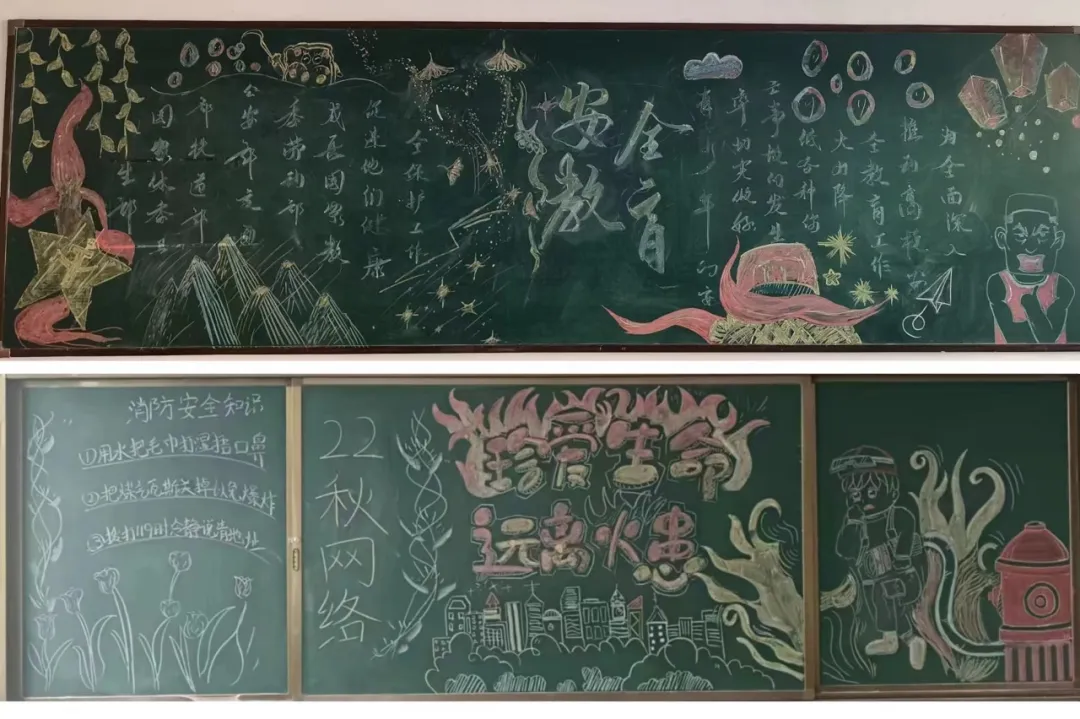 为全面深入
推动高校安
全教育工作
大力降
低各种伤
亡事故的发生
率切实做好
青少年
安全
教育
全保护工作
促进他们健康
成长国家教
委劳动部
公安部交通
部铁道部
国家体委卫
生部
消防安全知识
①用水把毛巾打湿捂口鼻
②把煤气瓦斯关掉以免爆炸
③拨打119时冷静说清地址
22
秋
网
络
珍爱生命
远离火患